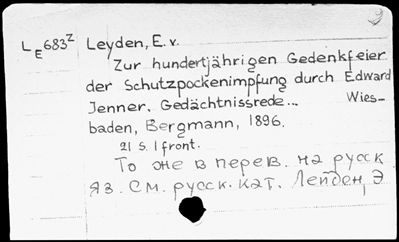 L E 683 Z Leyden, E. v.
Zur hundertjährigen Gedenkfeier
der Schutzpockenimpfung durch Edward
Jenner. Gedächtnissrede... Wies-
baden, Bergmann, 1896.
21 S. 1 front.
То же в перев. на русск
яз. См. русск. кат. Лейден, Э